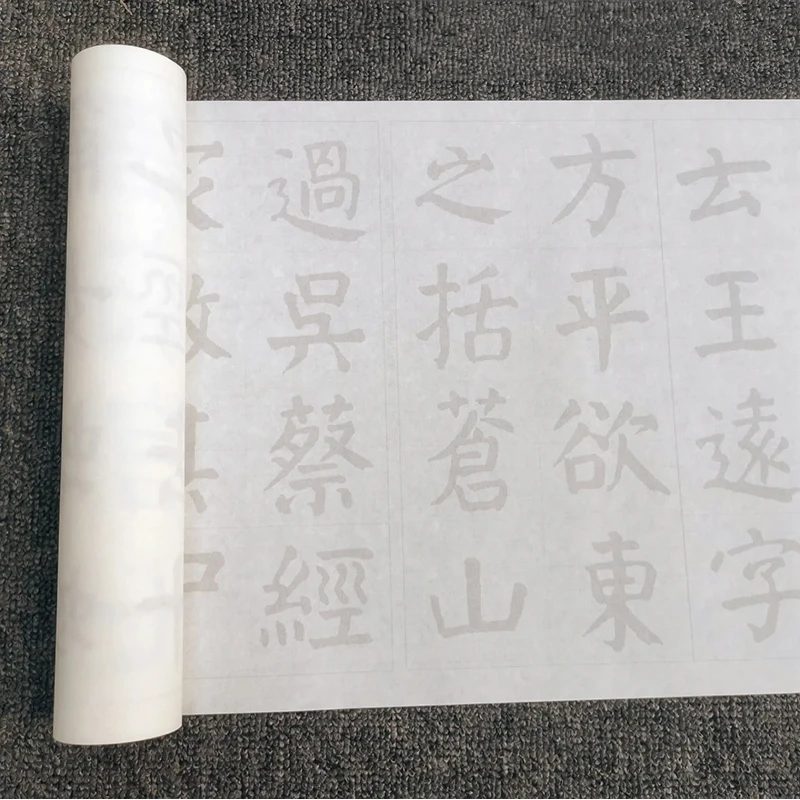 云王遠字
方平欲東
之括蒼山
過吳蔡經